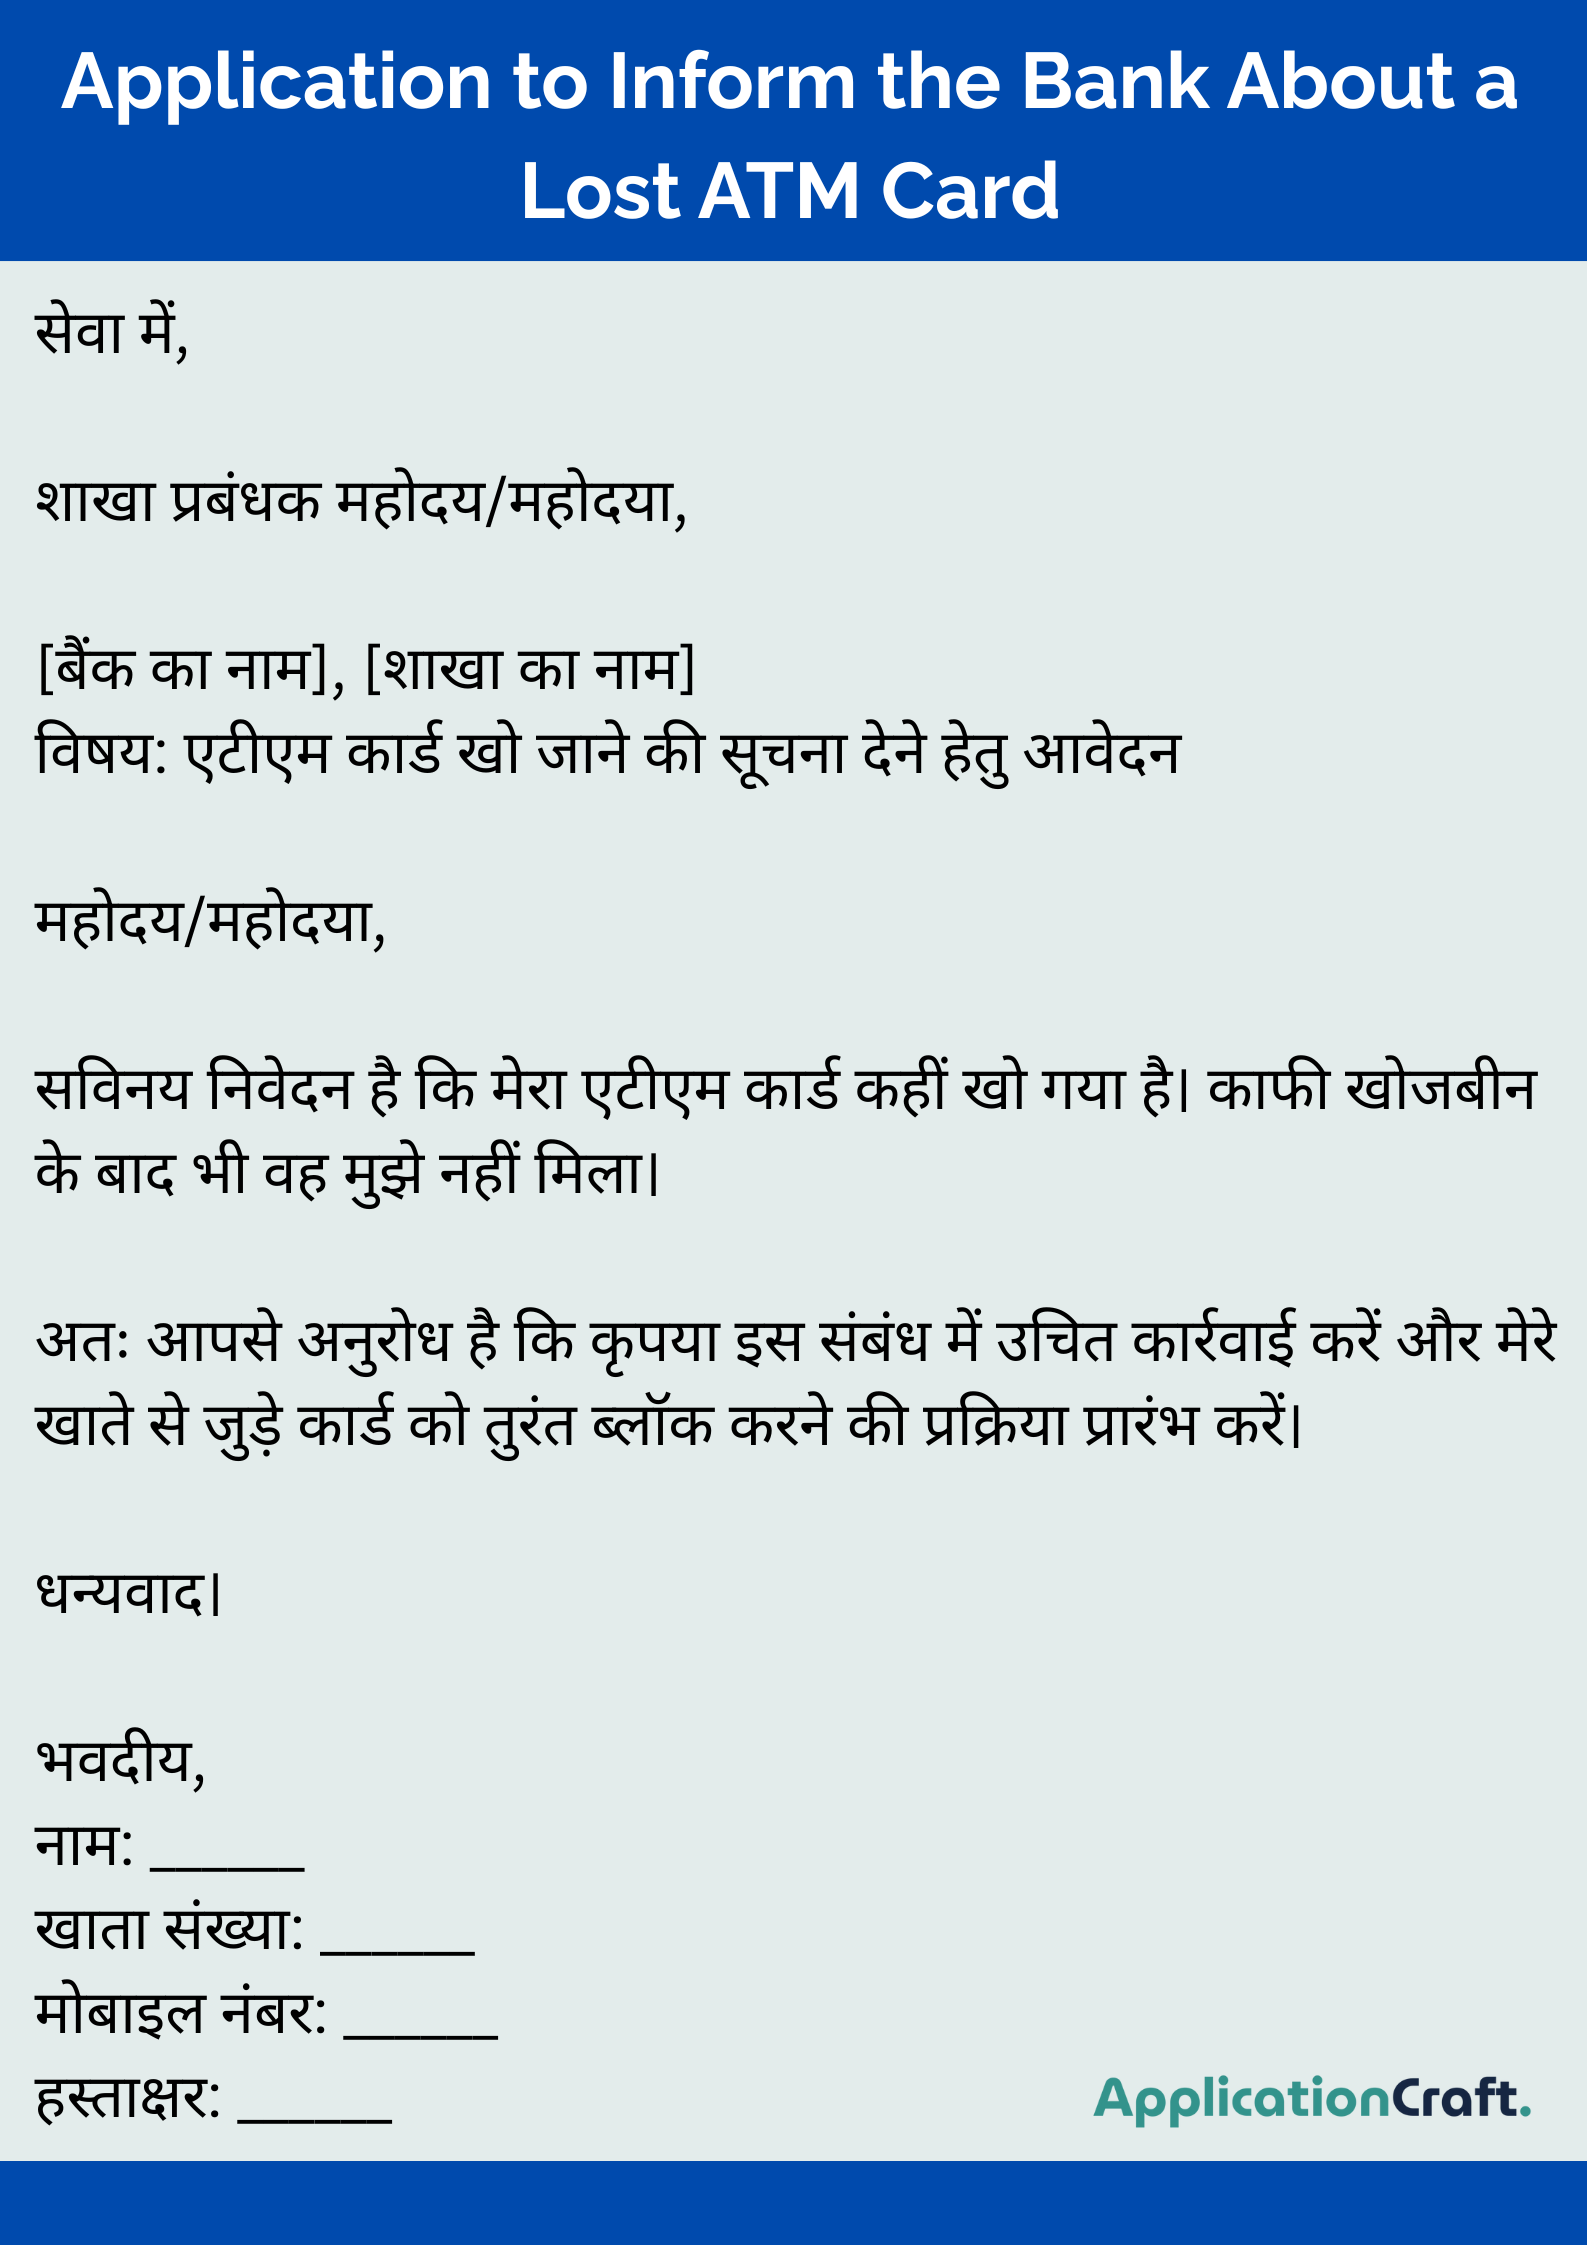 Application to Inform the Bank About a
Lost ATM Card
सेवा में,
शाखा प्रबंधक महोदय/महोदया,
[बैंक का नाम], [शाखा का नाम]
विषय: एटीएम कार्ड खो जाने की सूचना देने हेतु आवेदन
महोदय/महोदया,
सविनय निवेदन है कि मेरा एटीएम कार्ड कहीं खो गया है। काफी खोजबीन
के बाद भी वह मुझे नहीं मिला।
अतः आपसे अनुरोध है कि कृपया इस संबंध में उचित कार्रवाई करें और मेरे
खाते से जुड़े कार्ड को तुरंत ब्लॉक करने की प्रक्रिया प्रारंभ करें।
धन्यवाद।
भवदीय,
नाम: ______
खाता संख्या: ______
मोबाइल नंबर: ______
हस्ताक्षर: ______
ApplicationCraft.